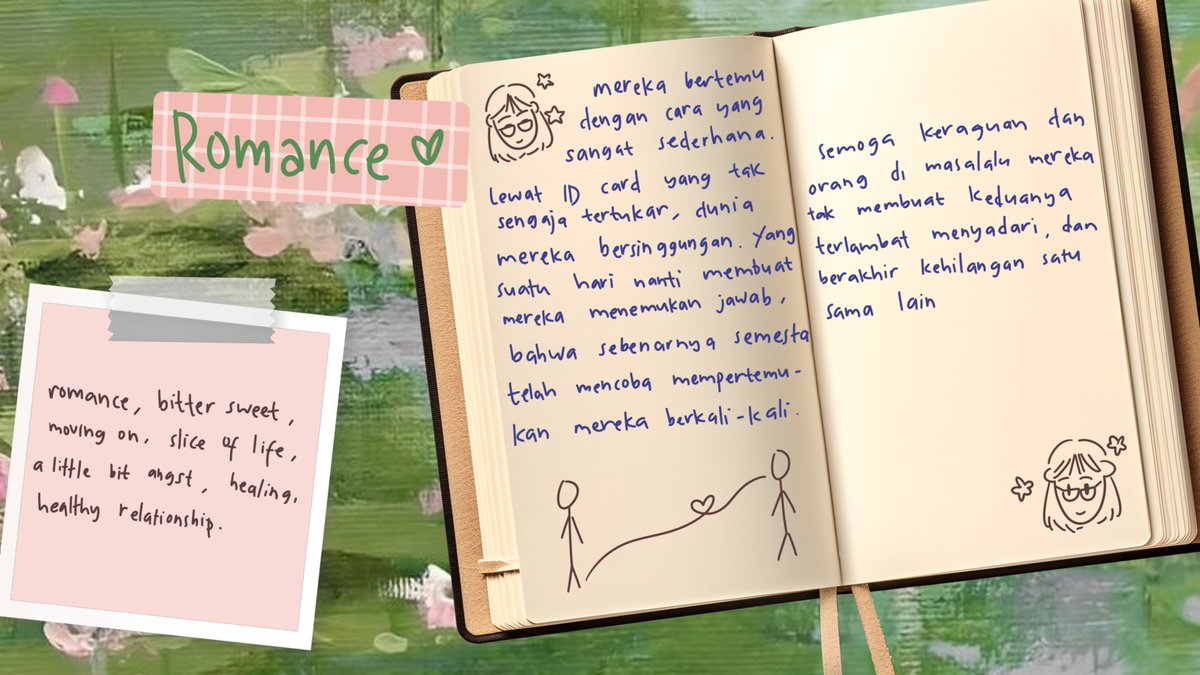 Romance
romance, bitter sweet,
moving on, slice of life,
a little bit angst, healing,
healthy relationship.
mereka bertemu
dengan cara yang
sangat sederhana.
lewat ID card yang tak
sengaja tertukar, dunia
mereka bersinggungan. Yang
suatu hari nanti membuat
mereka menemukan jawab,
bahwa sebenarnya semesta
telah mencoba mempertemu-
kan mereka berkali-kali.
Semoga keraguan dan
orang di masalalu mereka
tak membuat keduanya
terlambat menyadari, dan
berakhir kehilangan satu
sama lain